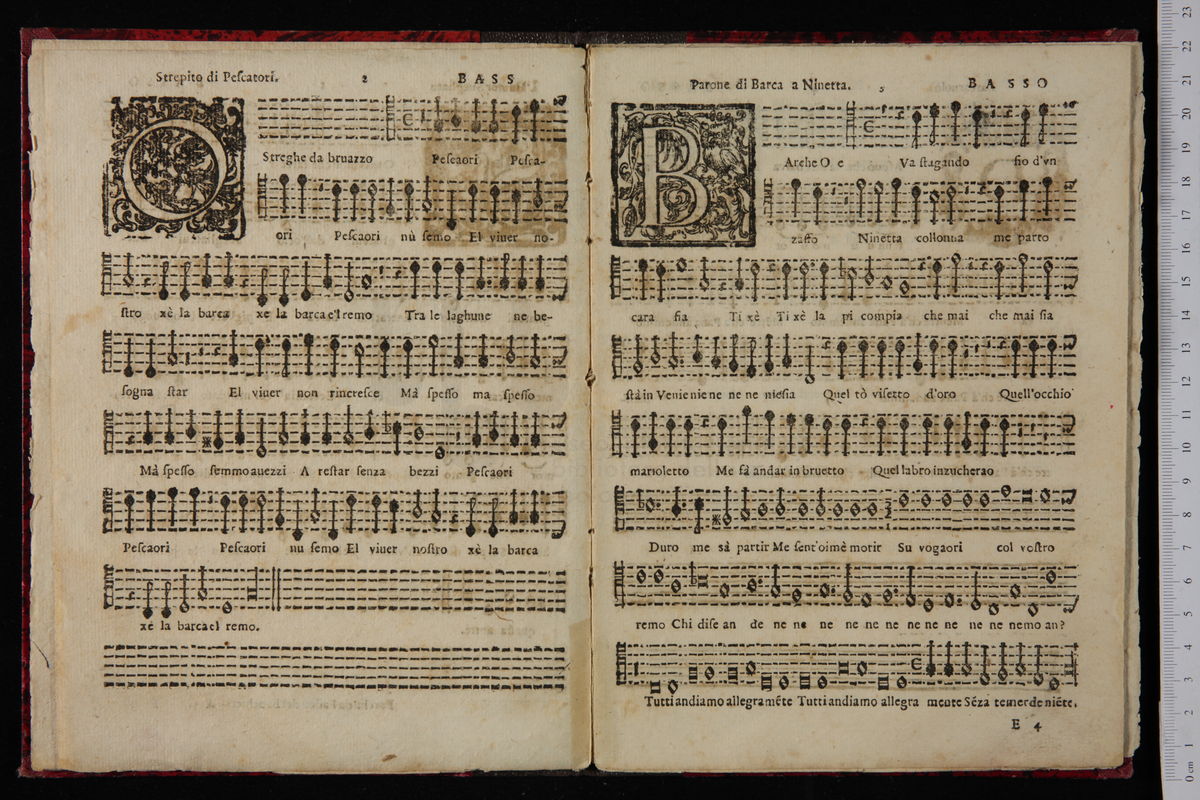 Strepito di Peſcatori. 2 BASS
O
Streghe da bruazzo Peſcaori Peſca-
ori Peſcaori nù ſemo El viuer no-
ſtro xè la barca xe la barca e'l remo Tra le laghune ne be-
ſogna ſtar El viuer non rincreſce Mà ſpeſſo ma ſpeſſo
Mà ſpeſſo ſemmo auezzi A reſtar ſenza bezzi Peſcaori
Peſcaori Peſcaori nu ſemo El viuer noſtro xè la barca
xè la barca el remo.
Parone di Barca a Ninetta. 5 BASSO
B
Arche O e Va ſtagando fio d'vn
zaffo Ninetta collonna me parto
cara fia Ti xè Ti xè la pi compia che mai che mai ſia
ſtà in Venie nie ne ne ne nieſia Quel tò viſetto d'oro Quell'occhio
marioletto Me fà andar in bruetto Quel labro inzucherao
Duro me sà partir Me ſent'oimè morir Su vogaori col voſtro
remo Chi diſe an de ne ne ne ne ne ne ne ne ne ne nemo an?
Tutti andiamo allegraméte Tutti andiamo allegra mente Séza temer de niéte.
E 4
0 cm 1 2 3 4 5 6 7 8 9 10 11 12 13 14 15 16 17 18 19 20 21 22 23